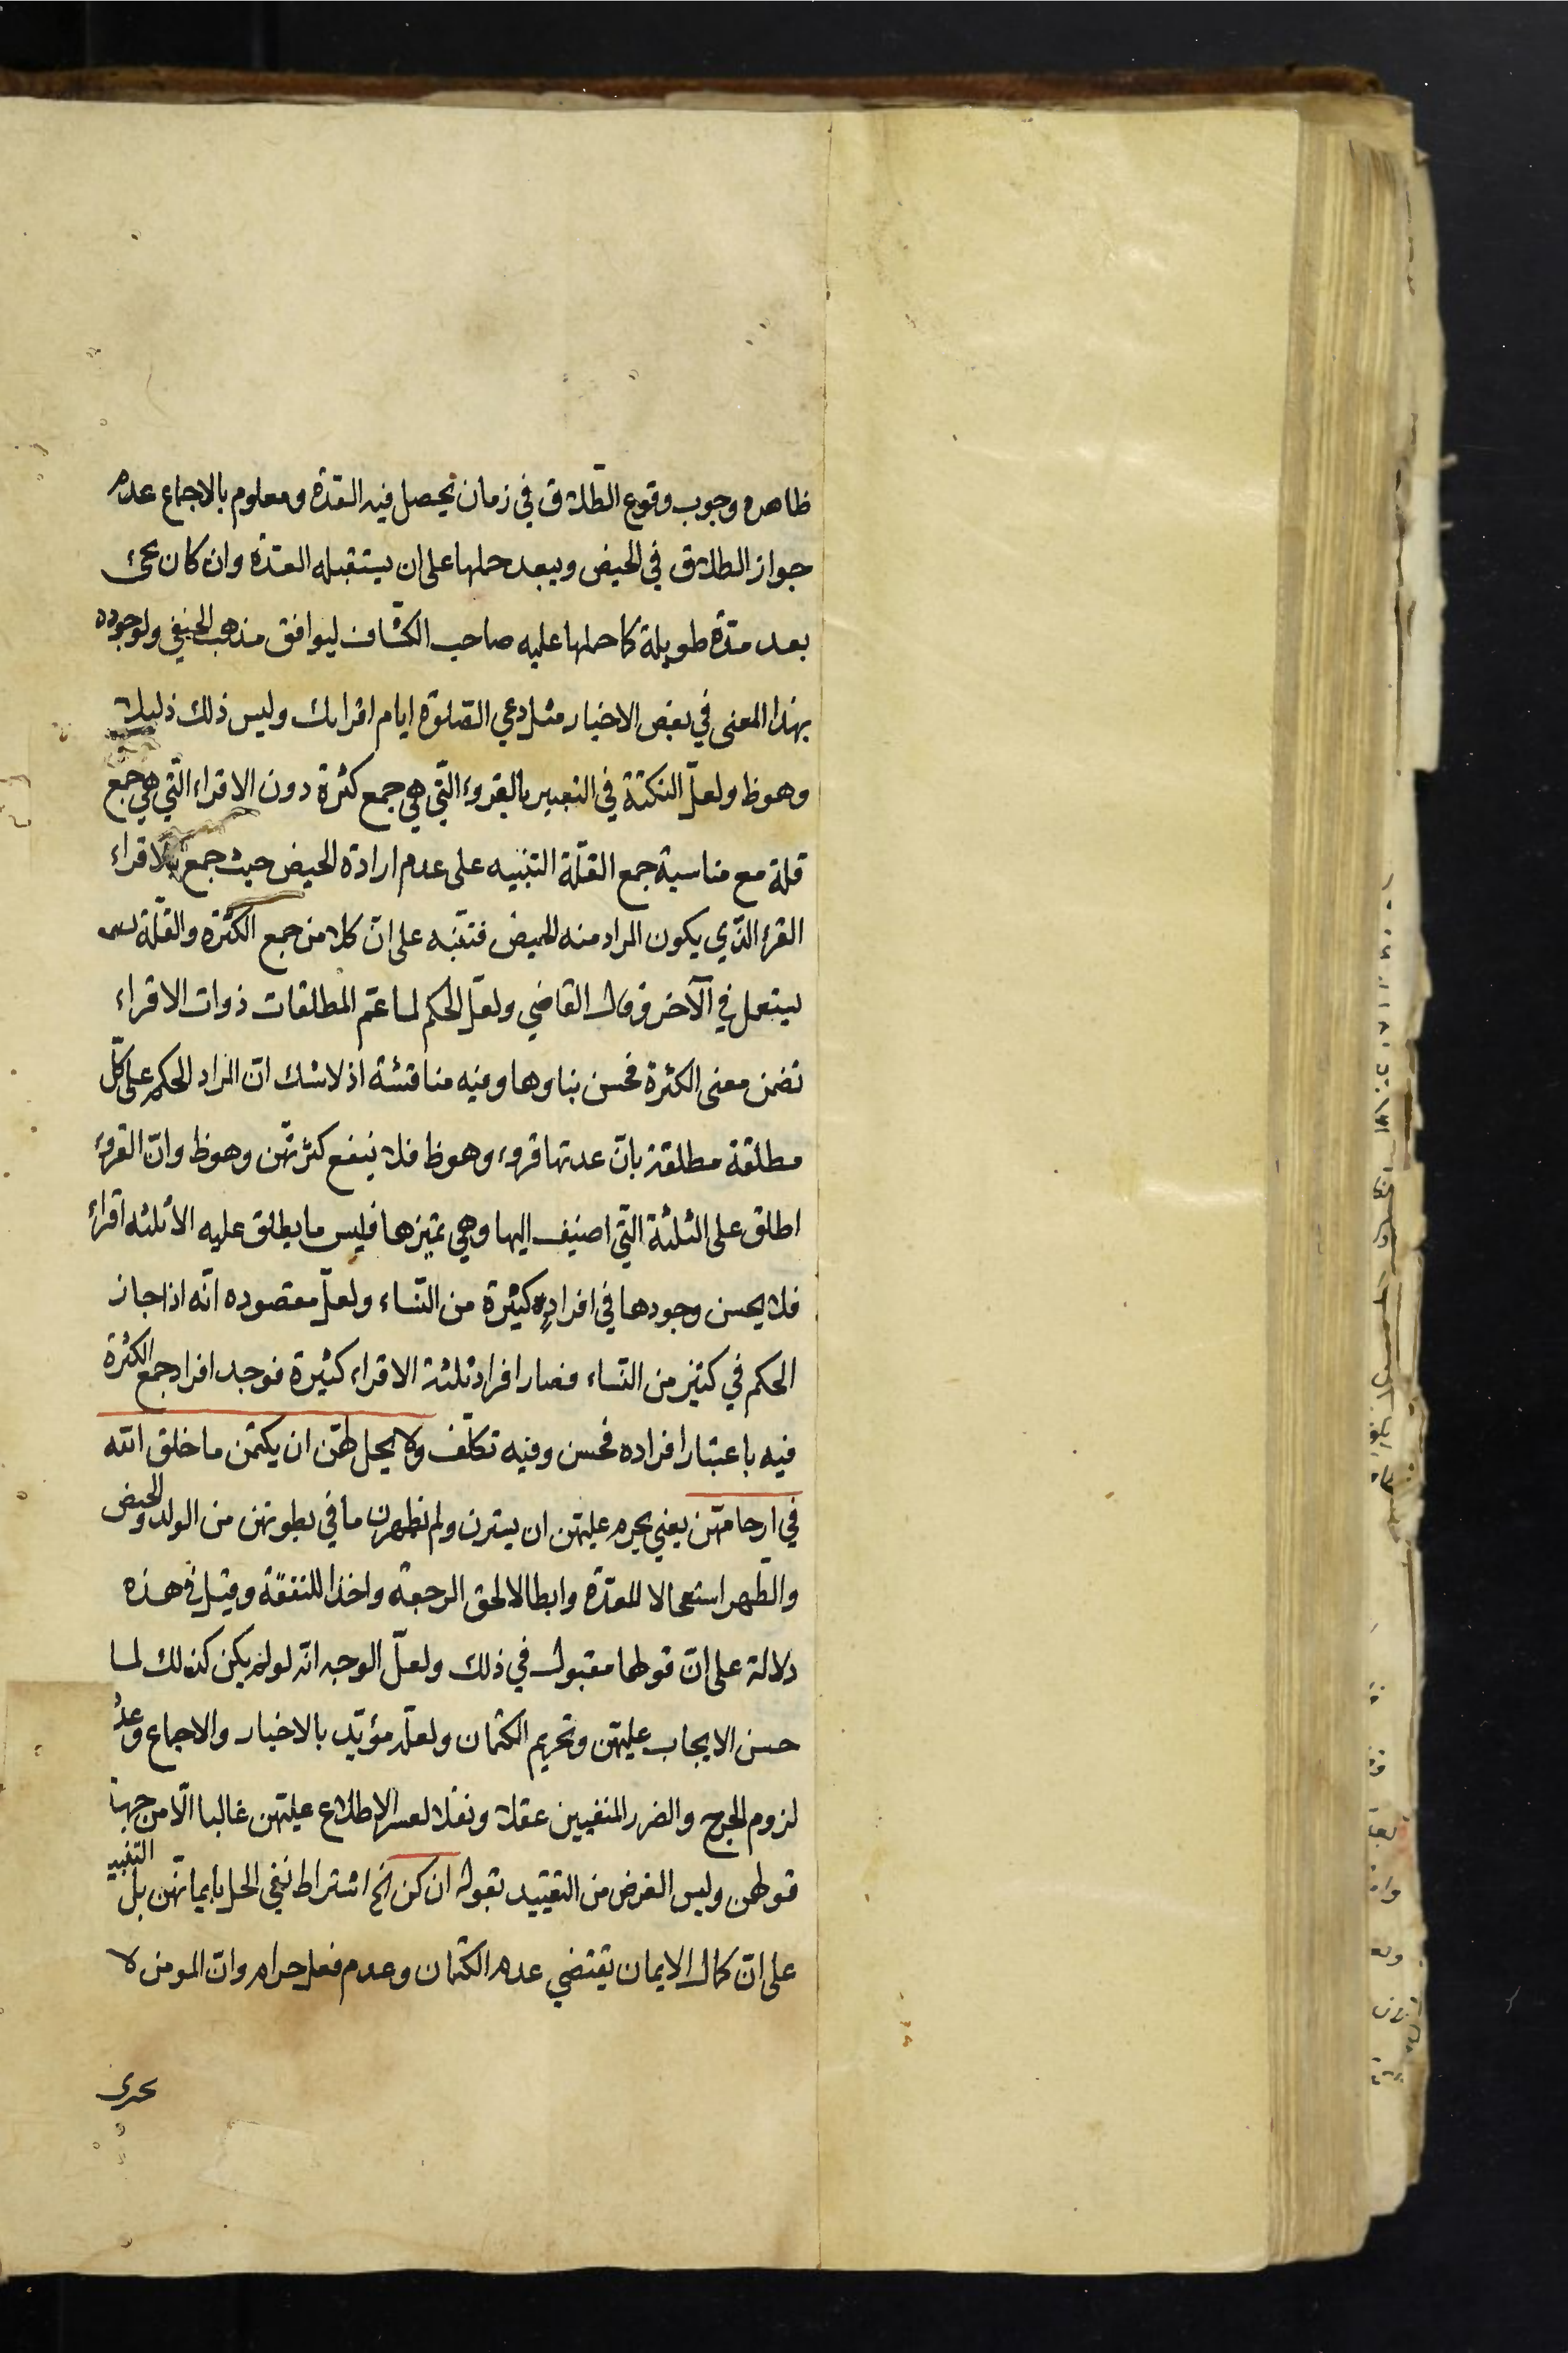 ظاهره وجوب وقوع الطلاق في زمان يحصل فيه العدّة ومعلوم بالاجماع عدم
جواز الطلاق في الحيض ويبعد حملها على ان يستقبله العدّة وان كان يجئ
بعد مدّة طويلة كما حملها عليه صاحب الكشّاف ليوافق مذهب الحنفي ولوجوده
بهذا المعنى في بعض الاخبار مثل دعي الصّلوة ايام اقرائك وليس ذلك
وهو ظ ولعلّ النكتة في التعبير بالقروء الّتي هي جمع كثرة دون الاقراء الّتي هي جمع
قلة مع مناسبة جمع القلّة التنبيه على عدم ارادة الحيض حيث جمع بالاقراء
القرء الّذي يكون المراد منه الحيض فتنبّه على انّ كلا من جمع الكثرة والقلّة
يستعمل في الآخر وقال القاضي ولعلّ الحكم لما عمّ المطلقات ذوات الاقراء
تضمن معنى الكثرة فحسن بناوها وفيه مناقشة اذ لا شك انّ المراد الحكم على كلّ
مطلقة مطلقة بانّ عدتها قروء وهو ظ فلا ينفع كثرتهّن وهو ظ وانّ القروء
اطلق على الثلثة الّتي اضيف اليها وهي تميزها فليس ما يطلق عليه الا ثلثه اقراء
فلا يحسن وجودها في افراد كثيرة من النّساء ولعلّ مقصوده انّه اذا جاز
الحكم في كثير من النّساء فصار افراد ثلثة الاقراء كثيرة فوجد افراد جمع الكثرة
فيه باعتبار افراده فحسن وفيه تكلّف ولا يحل لهّن ان يكتمن ما خلق الله
في ارحامهّن يعني يحرم عليهّن ان يسترن ولم تظهرن ما في بطونهن من الولد والحيض
والطّهر استعجالا للعدّة وابطالا لحق الرجعة واخذا للنفقة وقيل في هذه
دلالة على انّ قولها مقبول في ذلك ولعلّ الوجه انّه لو لم يكن كذلك لما
حسن الايجاب عليهّن وتحريم الكتمان ولعلّه مؤيّد بالاخبار والاجماع وعدم
لزوم الحرج والضرر المنفيين عقلا ونقلا لعسر الاطلاع عليهّن غالبا الّا من جهة
قولهن وليس الغرض من التقييد بقوله ان كن الخ اشتراط نفي الحل بايمانهّن بل التنبيه
على انّ كمال الايمان يقتضي عدم الكتمان وعدم فعل حرام وانّ المومن لا
يجرى